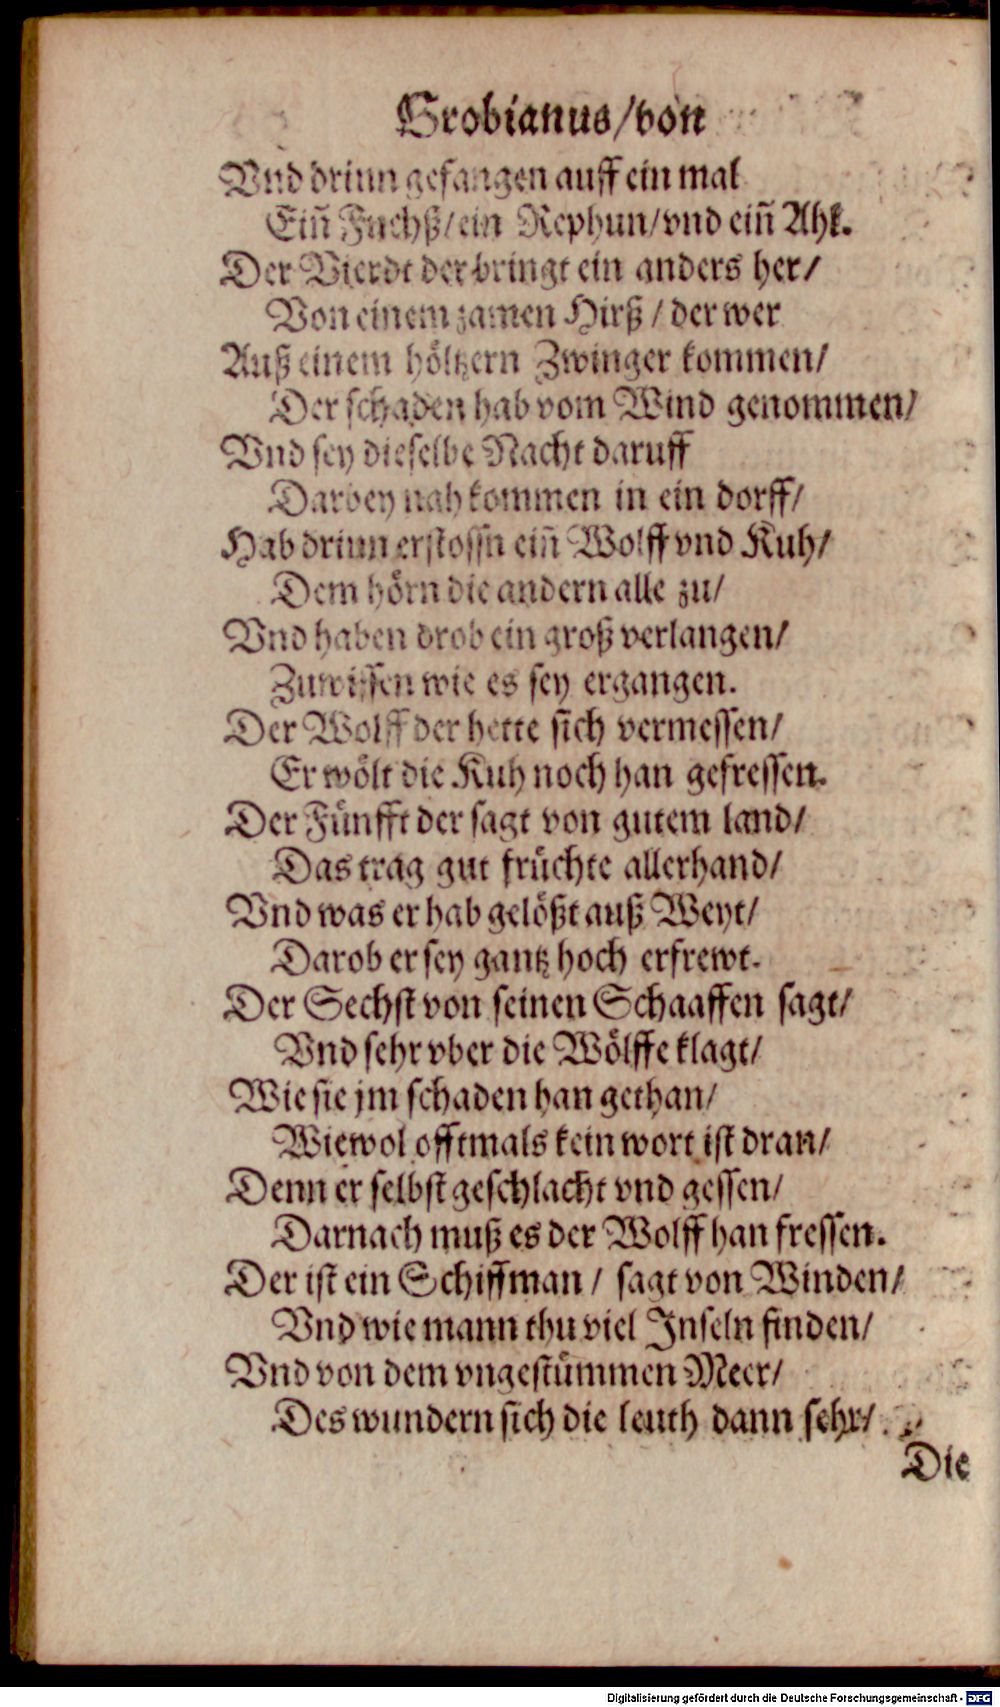 Grobianus/von
Vnd drinn gefangen auff ein mal
Ein̄ Fuchß/ein Rephun/vnd ein̄ Ahk.
Der Vierdt der bringt ein anders her/
Von einem zamen Hirß / der wer
Auß einem höltzern Zwinger kommen/
Der schaden hab vom Wind genommen/
Vnd sey dieselbe Nacht daruff
Darbey nah kommen in ein dorff/
Hab drinn erstossn ein̄ Wolff vnd Kuh/
Dem hörn die andern alle zu/
Vnd haben drob ein groß verlangen/
Zuwissen wie es sey ergangen.
Der Wolff der hette sich vermessen/
Er wölt die Kuh noch han gefressen.
Der Fünfft der sagt von gutem land/
Das trag gut früchte allerhand/
Vnd was er hab gelößt auß Weyt/
Darob er sey gantz hoch erfrewt.
Der Sechst von seinen Schaaffen sagt/
Vnd sehr vber die Wölffe klagt/
Wie sie jm schaden han gethan/
Wiewol offtmals kein wort ist dran/
Denn er selbst geschlacht vnd gessen/
Darnach muß es der Wolff han fressen.
Der ist ein Schiffman / sagt von Winden/
Vnd wie mann thu viel Inseln finden/
Vnd von dem vngestümmen Meer/
Des wundern sich die leuth dann sehr/
Die
Digitalisierung gefördert durch die Deutsche Forschungsgemeinschaft - DFG